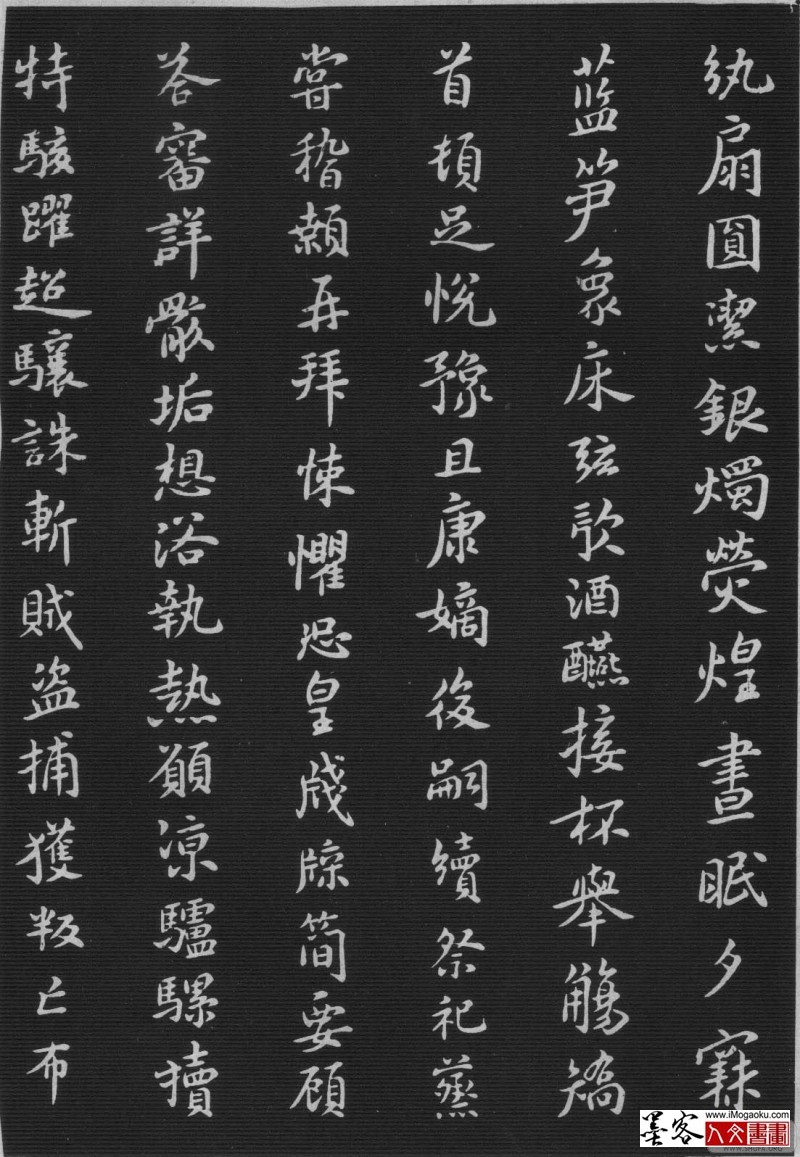 纨扇圓潔銀燭熒煌晝眠夕寐
蓝笋象床弦歌酒醼接杯舉觴矯
首頓足悅豫且康嫡後嗣續祭祀蒸
嘗稽顙再拜悚懼恐皇牋牒简要顾
荅審詳骸垢想浴執熱願凉驢騾犢
特駭躍超驤誅斬賊盜捕獲叛亡布
墨客
www.iMogaoku.com
人文書畫